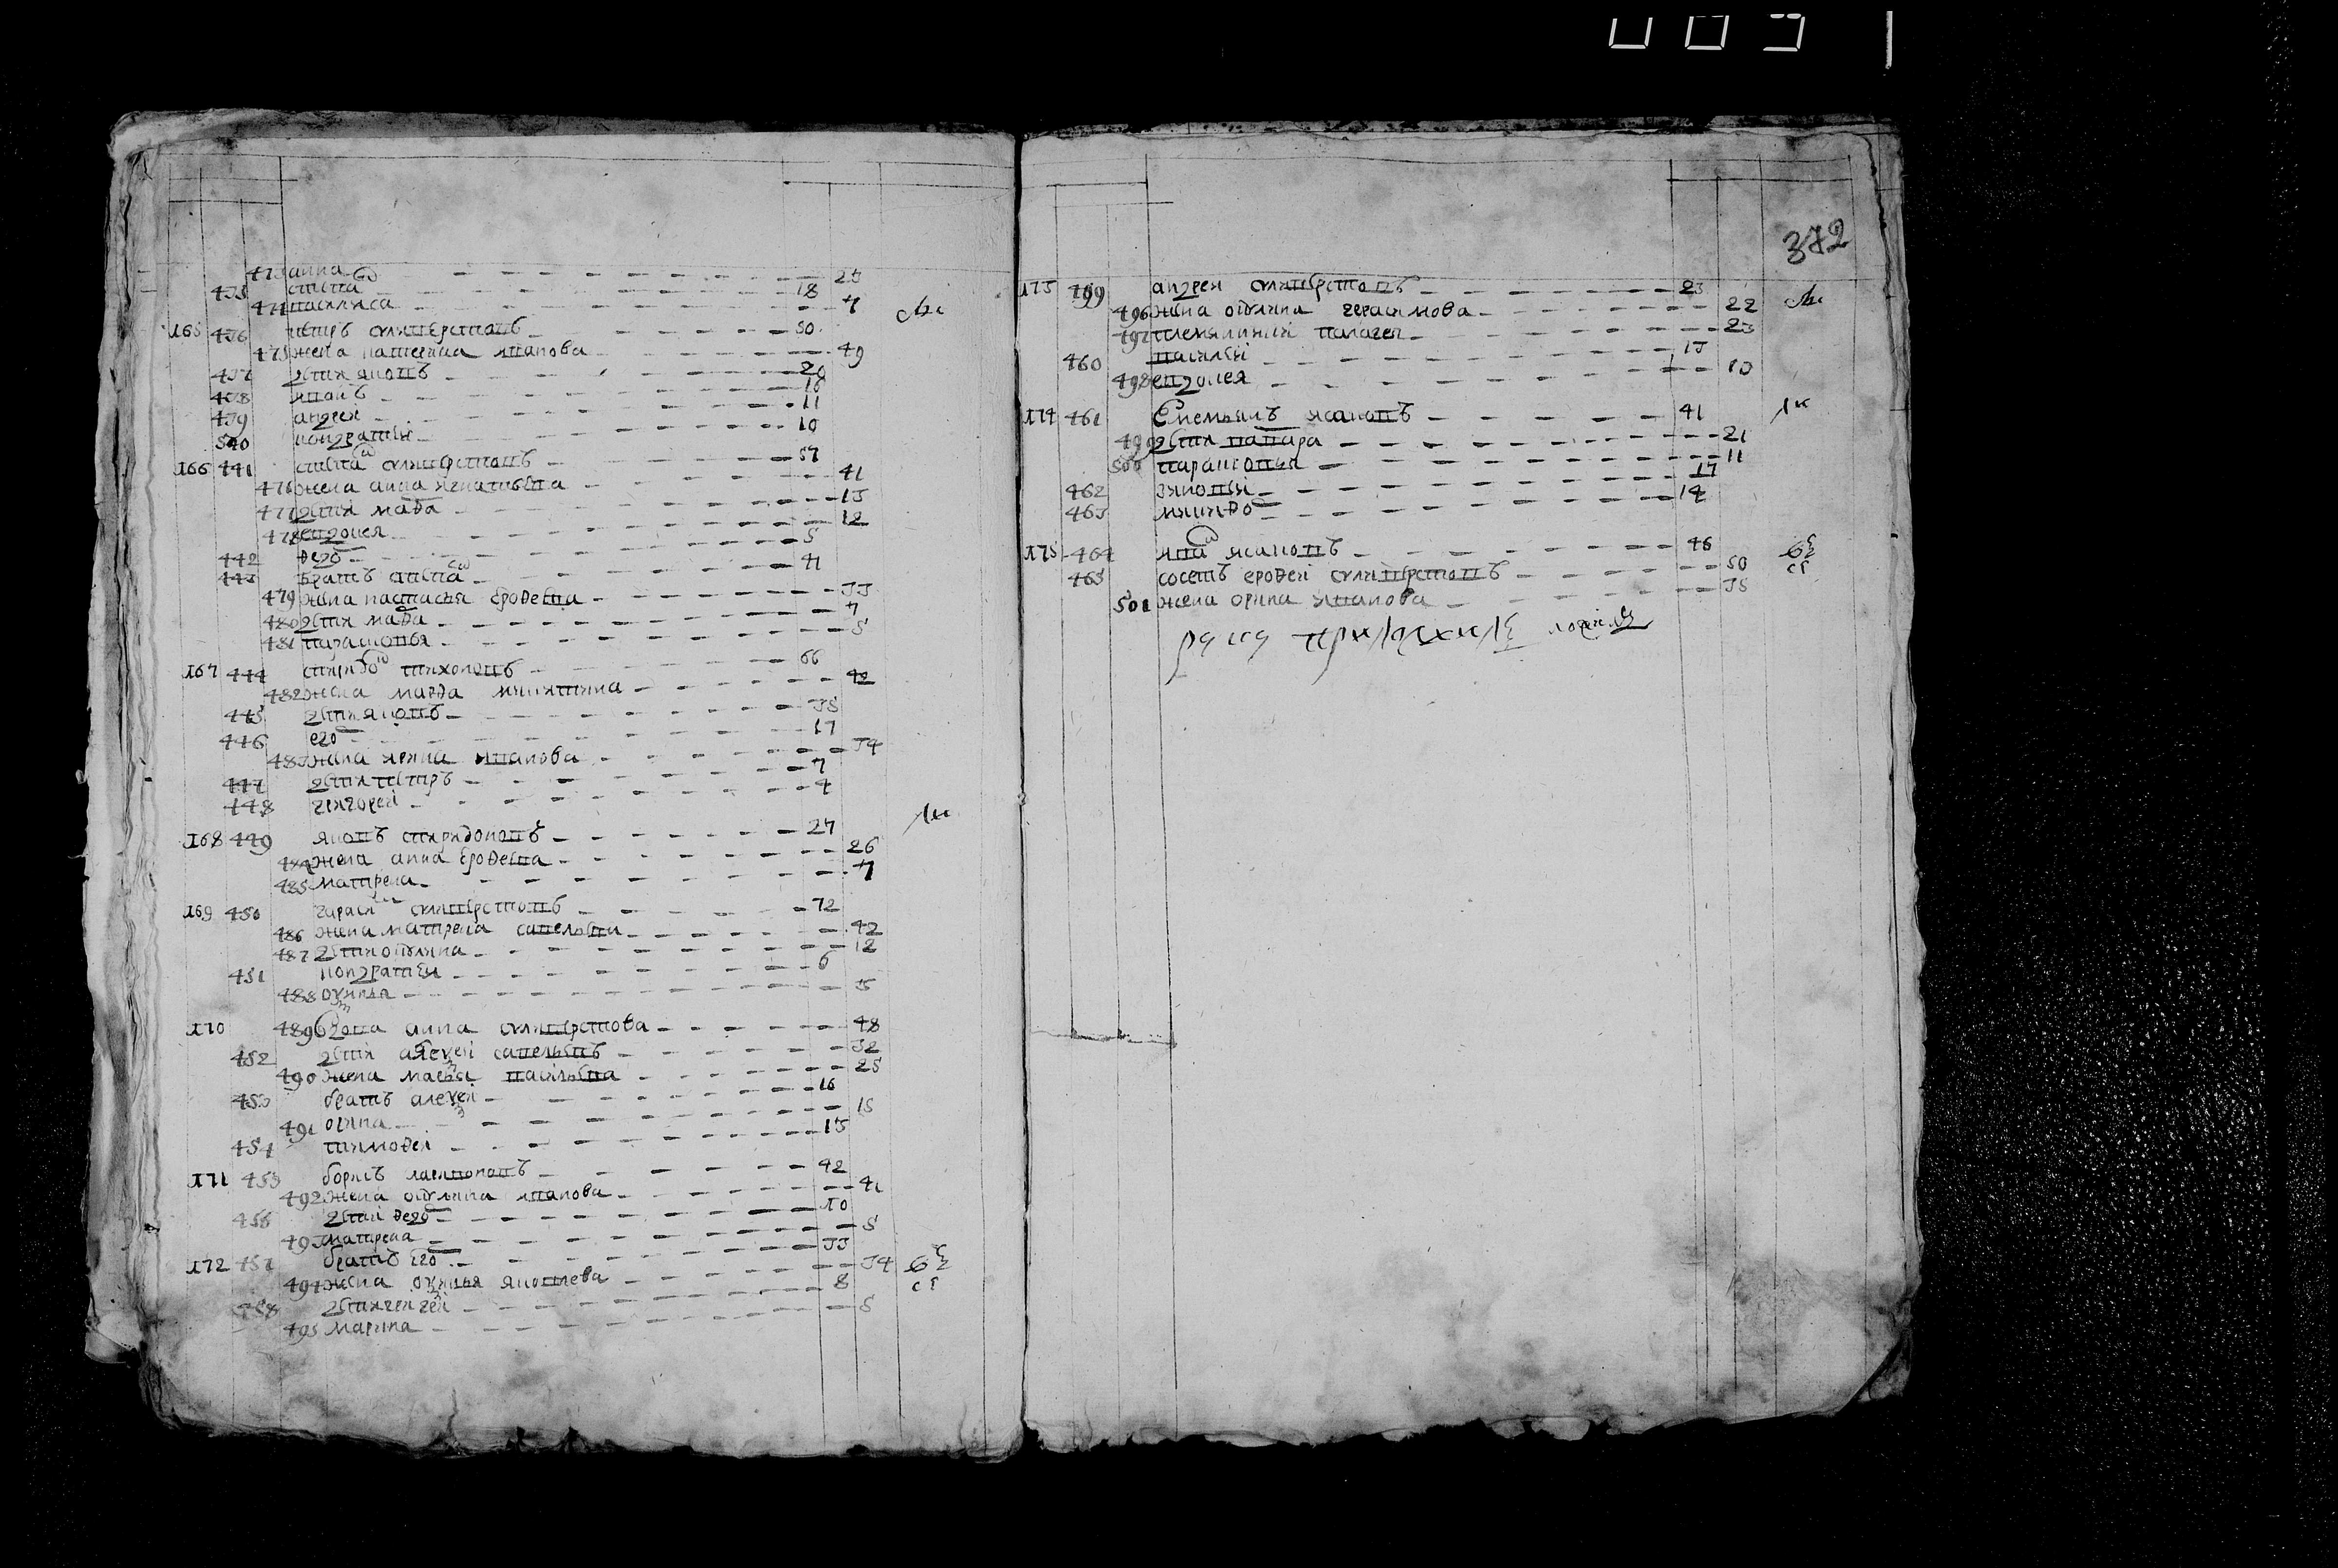 анна 23
435 степа 18
474 василиса 7
165 436 петръ силиверстовъ 50
475 жена катерина иванова 49
437 дети яковъ 20
438 иванъ 16
439 андреи 11
540 кондратеи 10
166 441 степа силиверстовъ 57
476 жена анна игнатьева 41
477 дети мафа 13
478 евдокея 12
442 федо 5
443 братъ степа 41
479 жена настасья ерофеева 33
480 дети мафа 7
481 парасковья 5
167 444 спиридо тихоновъ 66
482 жена марфа никитина 42
445 дети яковъ 35
446 его 17
483 жена ирина иванова 34
447 дети петръ 7
448 григореи 4
168 449 яковъ спиридоновъ 27
484 жена анна ерофеева 26
485 матрена 7
169 450 гараси силиверстовъ 72
486 жена матрена савельева 42
487 дети овдотья 12
451 кондратеи 6
488 оксинья 3
170 489 вдова анна силиверстова 48
452 дети алексеи савельевъ 32
490 жена мавра васильева 25
453 братъ алексеи 16
491 орина 15
454 тимофеи 13
171 455 борисъ ларионовъ 42
492 жена иванова 41
456 дети федо 10
493 матрена 5
172 457 братъ его 33
494 жена оксинья яковлева 34
458 дети 8
495 марина 5
372
173 459 андреи силиверстовъ 23
496 жена герасимова 22
497 племянники палагея 23
460 василеи 13
498 евдокея 10
174 461 Емельянъ исаковъ 41
499 дети варвара 21
500 парасковья 11
462 зиновеи 17
463 никифо 14
175 464 ива исаковъ 46
465 соседъ ерофеи силиверстовъ 50
501 жена орина иванова 35
руку приложилъ